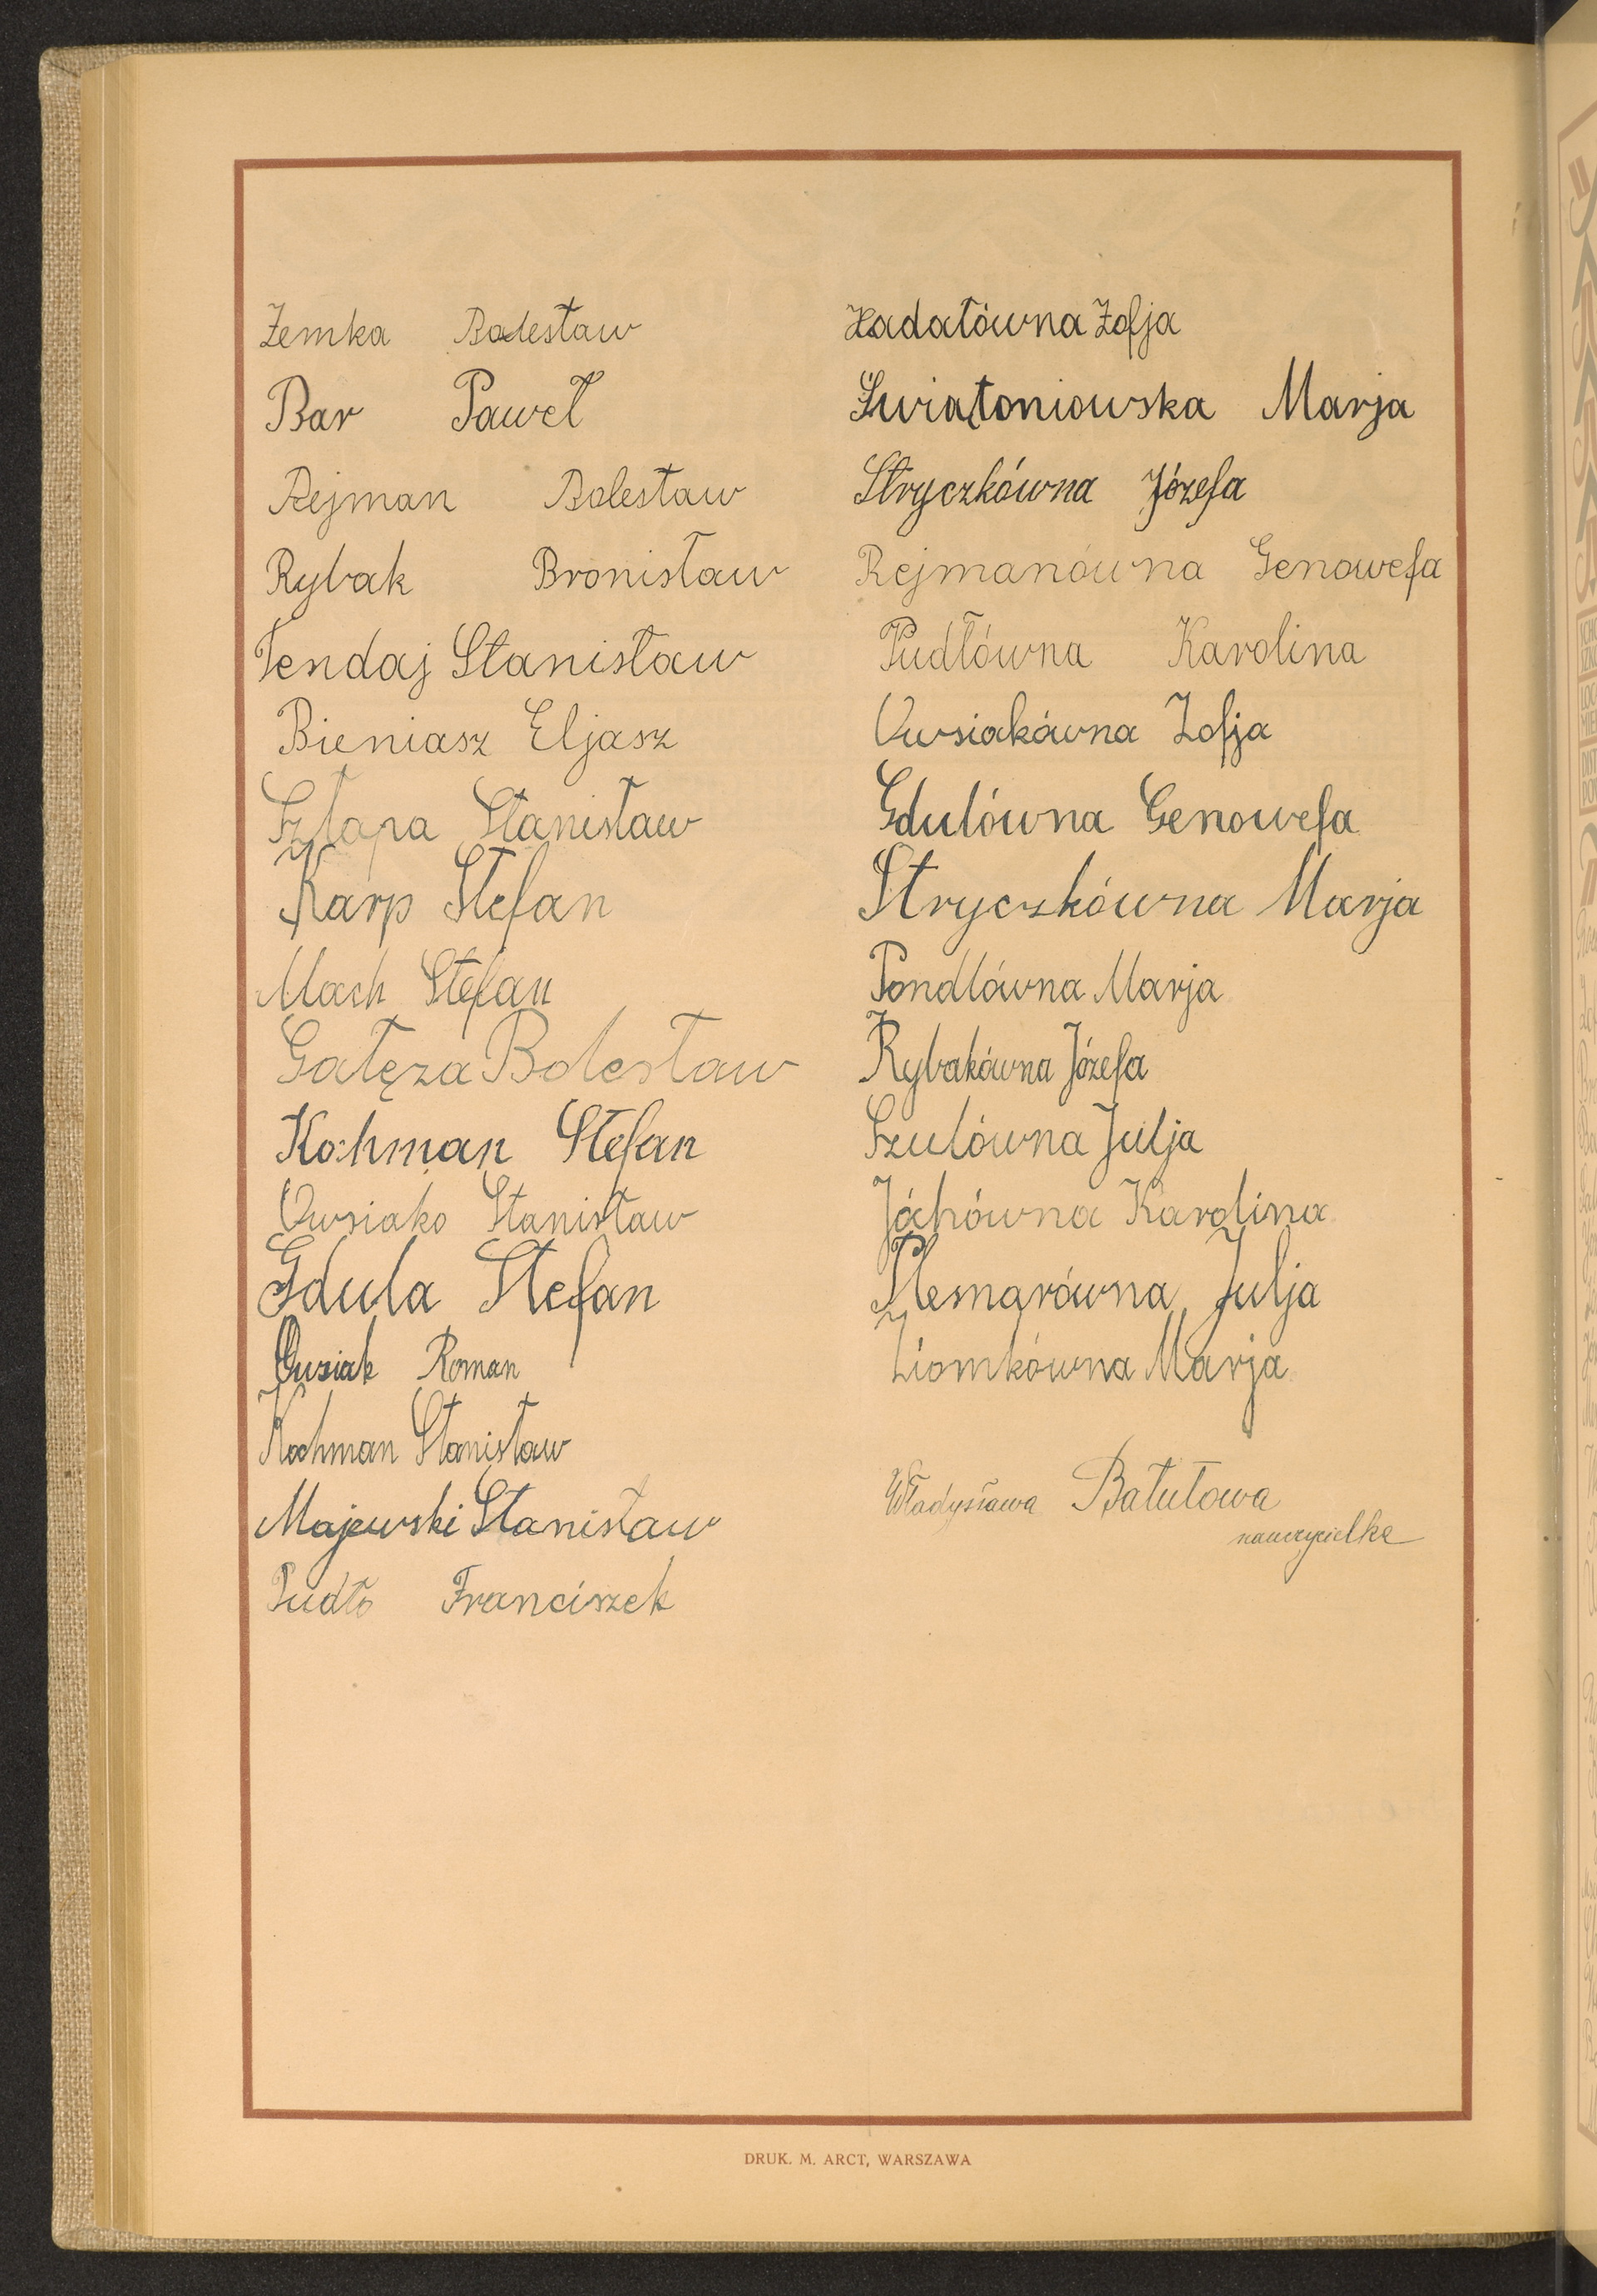 Zemka Bolesław
Bar Paweł
Rejman Bolesław
Rybak Bronisław
Tendaj Stanisław
Bieniasz Eljasz
Szłapa Stanisław
Karp Stefan
Mach Stefan
Gałęza Bolesław
Kochman Stefan
Owsiako Stanisław
Gdula Stefan
Owsiak Roman
Kochman Stanisław
Majewski Stanisław
Pudło Franciszek
Hadałówna Zofja
Światoniowska Marja
Stryczkówna Józefa
Rejmanówna Genowefa
Pudłówna Karolina
Owsiakówna Zofja
Gdulówna Genowefa
Stryczkówna Marja
Pondlówna Marja
Rybakówna Józefa
Szulówna Julja
Jáchówna Karolina
Julja
Ziomkówna Marja
Władysława Batutowa
nauczycielka
DRUK. M. ARCT, WARSZAWA